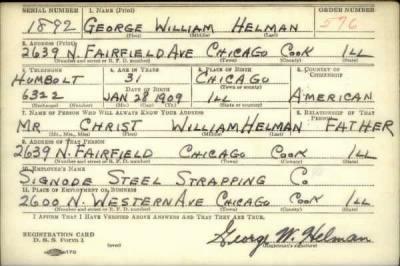 SERIAL NUMBER 1. NAME (Print) ORDER NUMBER
1892 GEORGE WILLIAM HELMAN 576
(First) (Middle) (Last)
2. ADDRESS (Print)
2639 N. FAIRFIELD AVE CHICAGO COOK ILL
(Number and street or R. F. D. number) (Town) (County) (State)
3. TELEPHONE 4. AGE IN YEARS 5. PLACE OF BIRTH 6. COUNTRY OF CITIZENSHIP
HUMBOLT 31 CHICAGO
DATE OF BIRTH (Town or county)
6322 JAN 28 1909 ILL AMERICAN
(Exchange) (Number) (Mo.) (Day) (Yr.) (State or country)
7. NAME OF PERSON WHO WILL ALWAYS KNOW YOUR ADDRESS 8. RELATIONSHIP OF THAT PERSON
MR CHRIST WILLIAM HELMAN FATHER
(Mr., Mrs., Miss) (First) (Middle) (Last)
9. ADDRESS OF THAT PERSON
2639 N. FAIRFIELD CHICAGO COOK ILL
(Number and street or R. F. D. number) (Town) (County) (State)
10. EMPLOYER'S NAME
SIGNODE STEEL STRAPPING CO
11. PLACE OF EMPLOYMENT OR BUSINESS
2600 N. WESTERN AVE CHICAGO COOK ILL
(Number and street or R. F. D. number) (Town) (County) (State)
I AFFIRM THAT I HAVE VERIFIED ABOVE ANSWERS AND THAT THEY ARE TRUE.
REGISTRATION CARD
D. S. S. Form 1 (over) George W. Helman
(Registrant's signature)